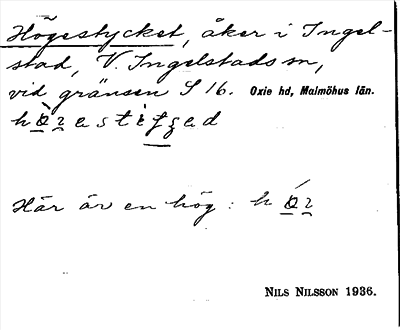 Högestycket, åker i Ingel-
stad, V. Ingelstads sn,
vid gränsen S 16. Oxie hd, Malmöhus län.
Här är en hög:
NILS NILSSON 1936.